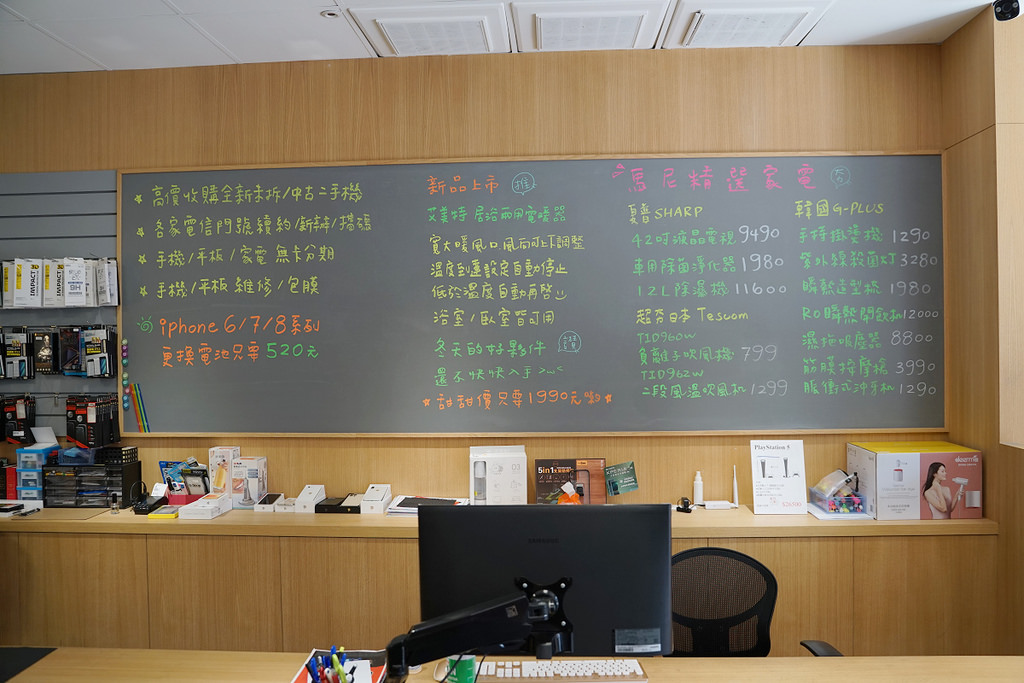 高價收購全新未拆/中古二手機
各家電信門號續約/新辦/攜碼
手機/平板/家電 無卡分期
手機/平板 維修/包膜
iphone 6/7/8系列
更換電池只要 520元
新品上市 推
艾美特 居浴兩用電暖器
寬大暖風口,風向可上下調整
溫度到達設定自動停止
低於溫度自動再啓
浴室/臥室皆可用
冬天的好夥伴
還不快快入手 >﹏<
甜甜價只要1990元
馬尼精選家電 夯
夏普SHARP
42吋液晶電視 9490
車用除菌淨化器 1980
12L除濕機 11600
超夯日本 Tescom
TID960W
負離子吹風機 799
TID962W
二段風溫吹風机 1299
韓國G-PLUS
手持掛燙機 1290
紫外線殺菌灯 3280
瞬熱造型梳 1980
RO瞬熱開飲机 12000
濕拖吸塵器 8800
筋膜按摩槍 3990
脈衝式沖牙机 1290
IMPACT
IMPACT
9H
D3
5in1
PlayStation 5
deerma
SAMSUNG